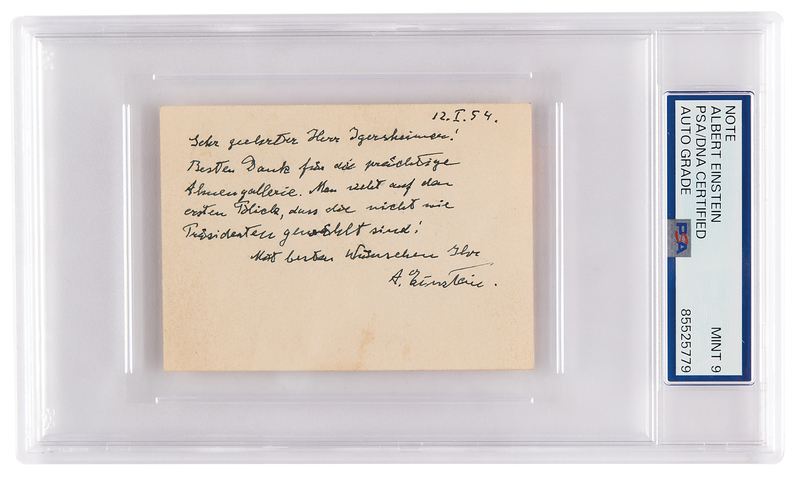 12.I.54.
Sehr geehrter Herr Igersheimer!
Besten Dank für die prächtige
Ahnengallerie. Man sieht auf den
ersten Blick, dass die nicht wie
Präsidenten gewählt sind!
Mit besten Wünschen Ihr
A. Einstein.
NOTE
ALBERT EINSTEIN
PSA/DNA CERTIFIED
AUTO GRADE
MINT 9
PSA
85525779